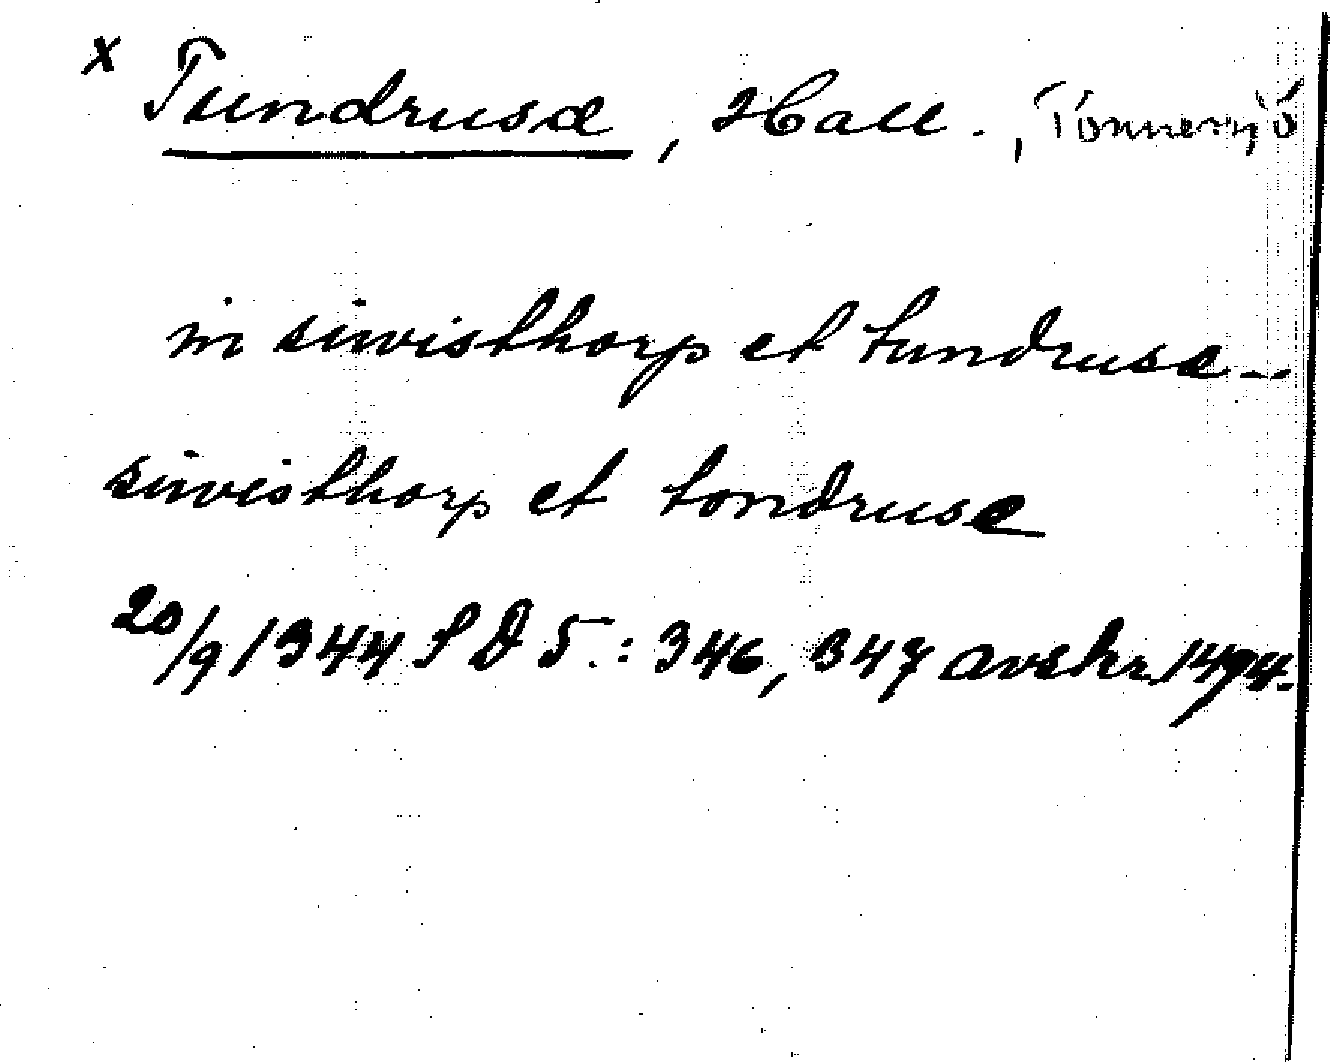 x Tundrusæ, Hall., Tönnersjö
in siwisthorp et tundrusæ --
siwisthorp et tondruse
20/9 1344 SD 5.: 346, 347 avskr. 1494.